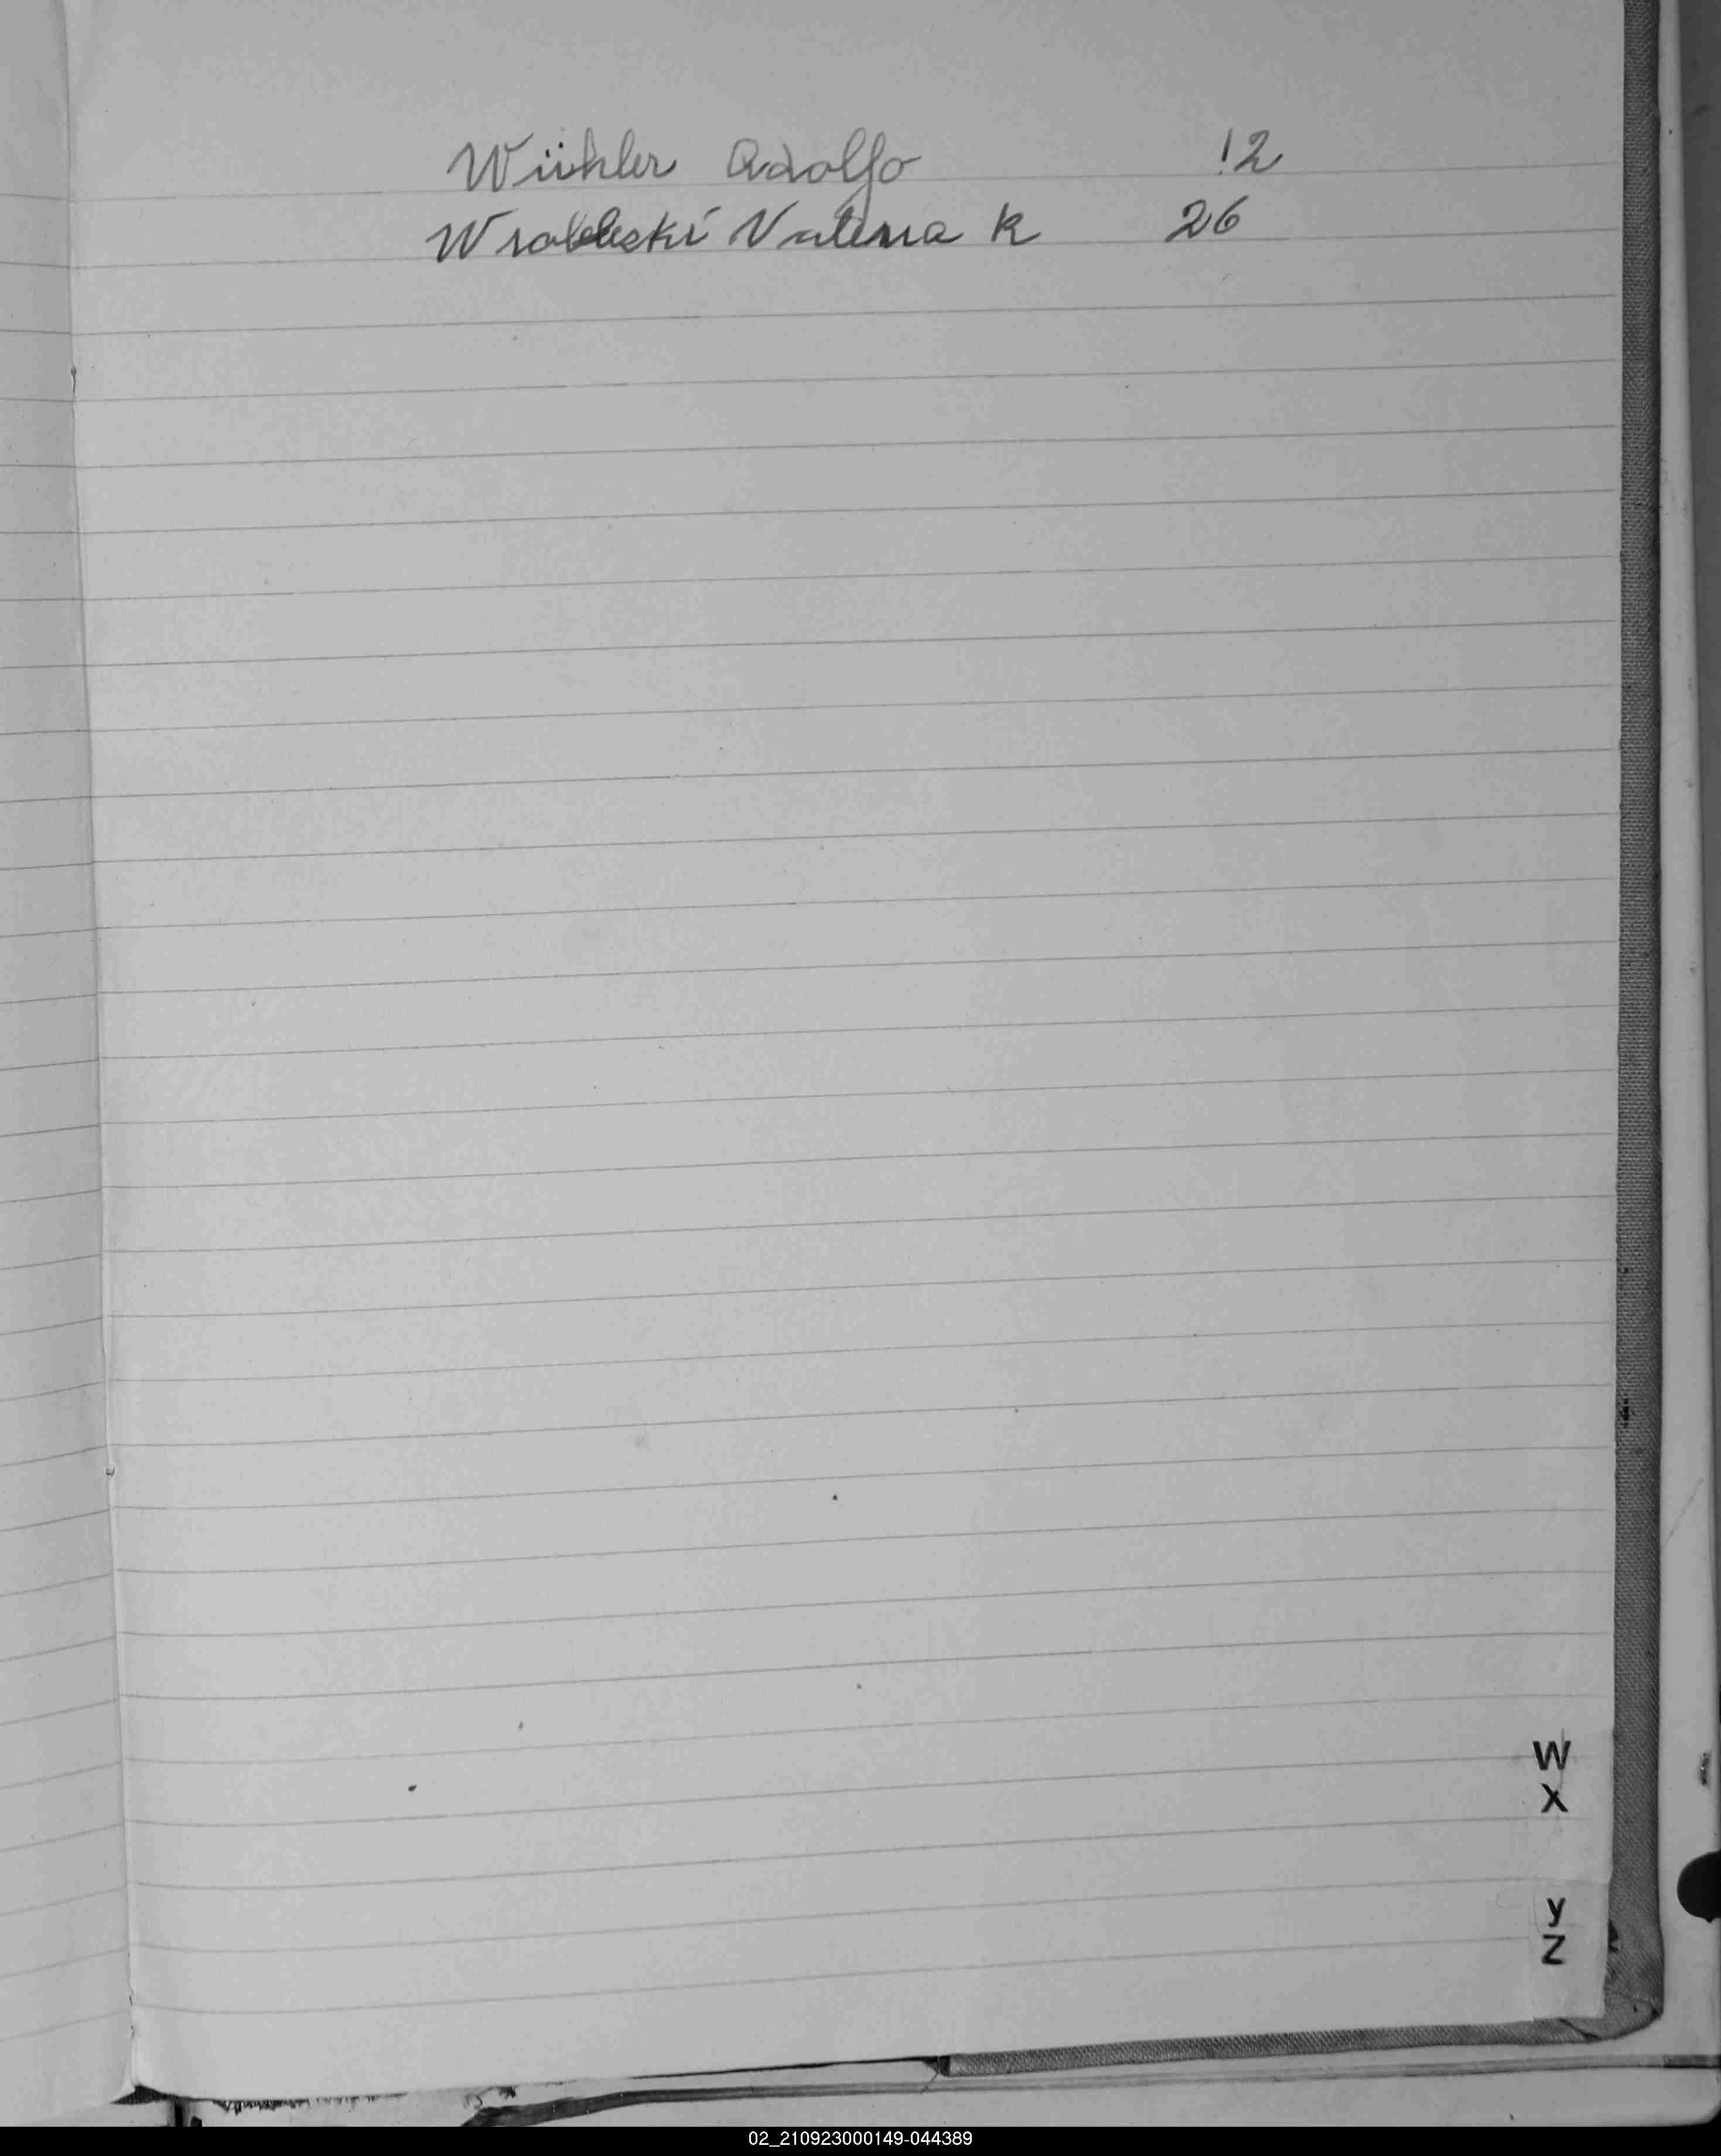 Wühler Adolfo 12
Wrobleski Valeria K 26
W
X
Y
Z
02_210923000149-044389